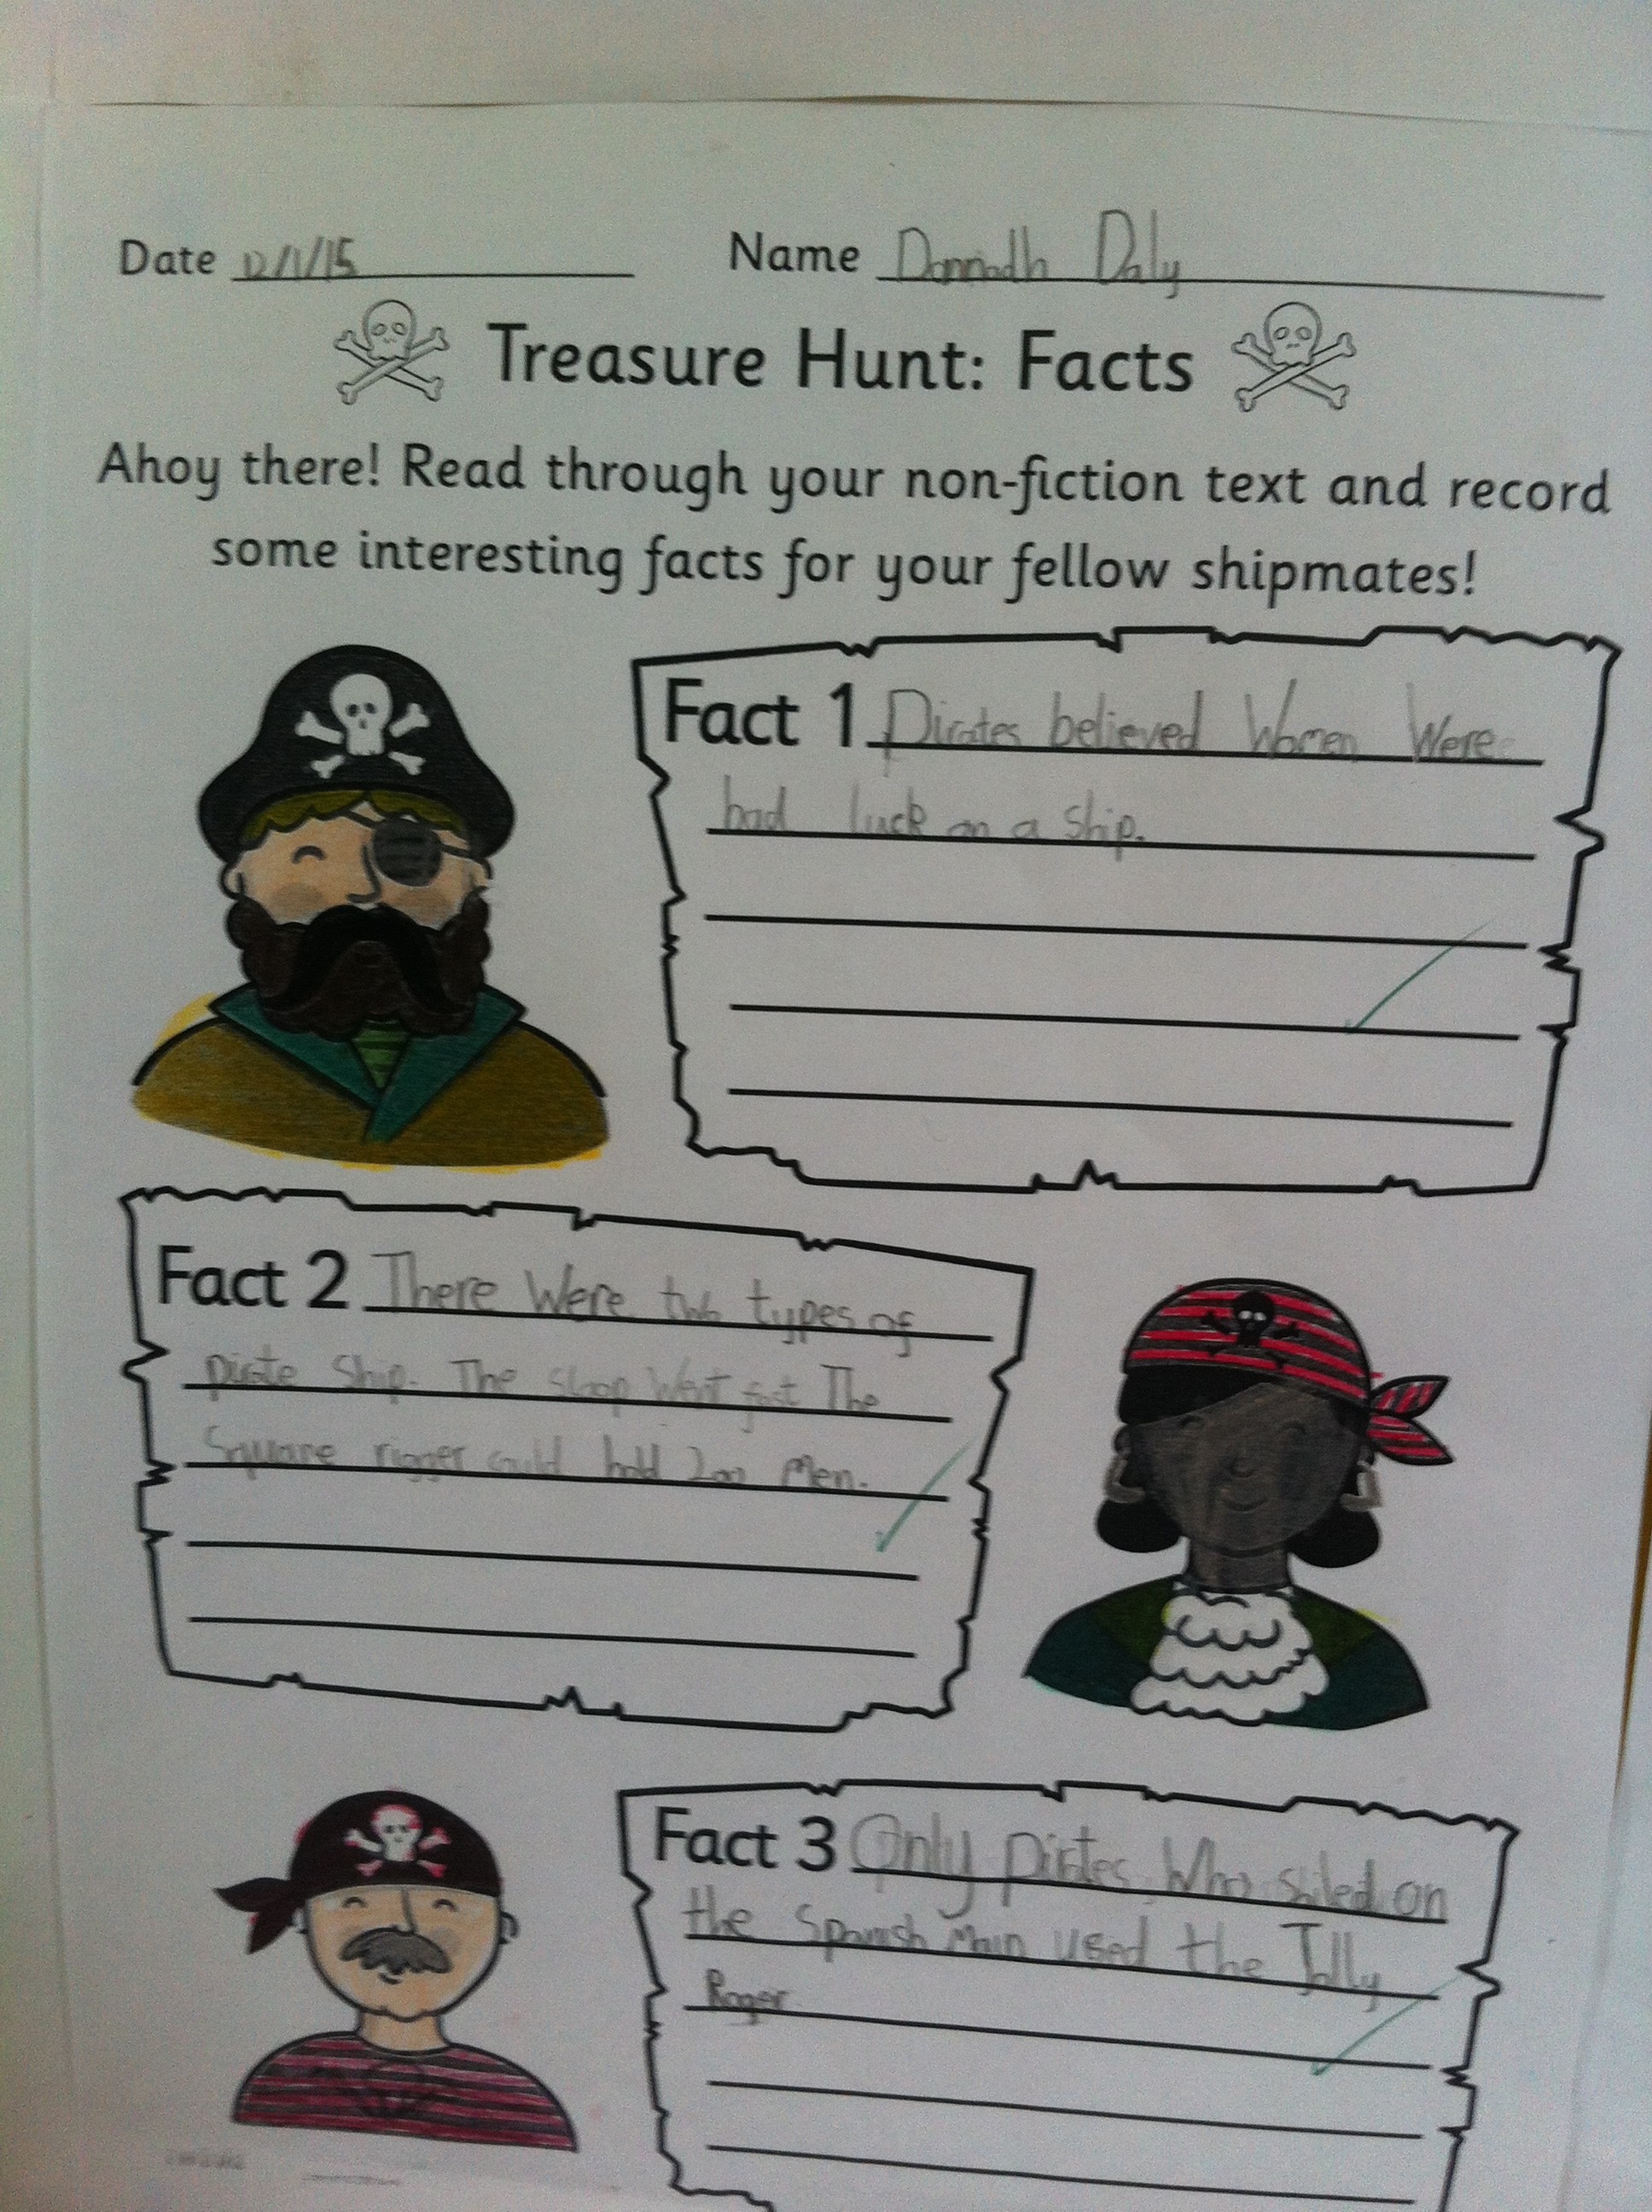 Date 12/1/15 Name Donnadh Daly
Treasure Hunt: Facts
Ahoy there! Read through your non-fiction text and record
some interesting facts for your fellow shipmates!
Fact 1 Pirates believed Women Were
bad luck on a ship.
Fact 2 There Were two types of
pirate Ship. The sloop Went fast The
Square rigger could hold 200 Men.
Fact 3 Only pirates Who sailed on
the Spanish Main used the Jolly
Roger